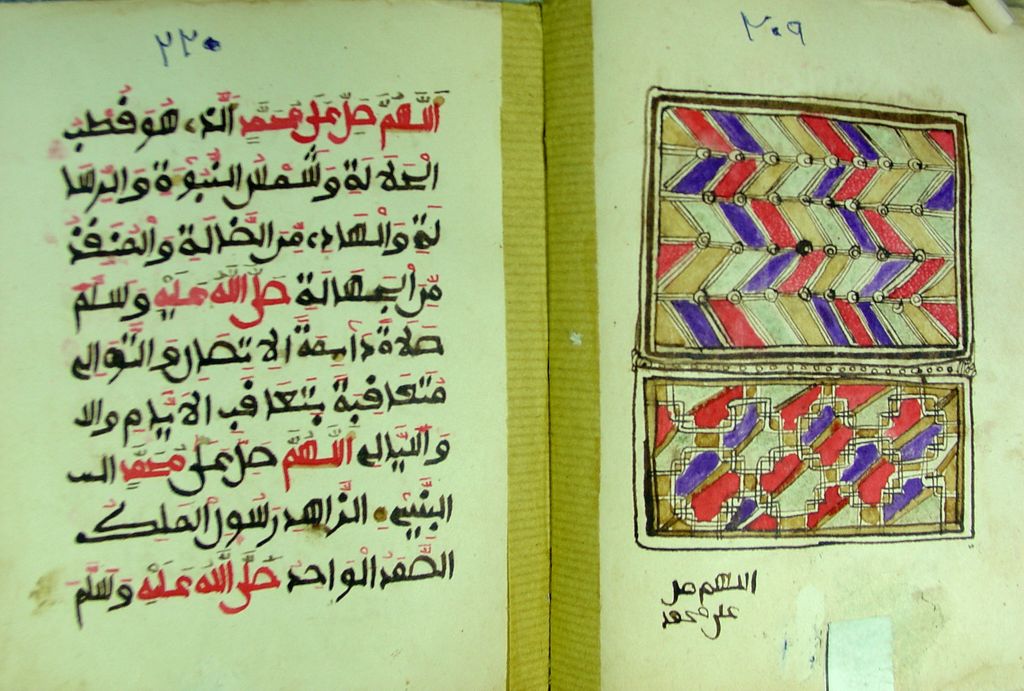 ٢٠٩
اللهم صل
على محمد
٢٢٠
اَللّٰهُمَّ صَلِّ عَلَى مُحَمَّدٍ اَلَّذِي هُوَ قُطْبُ
الْجَلَالَةِ وَشَمْسُ النُّبُوَّةِ وَالرِّسَا
لَةِ وَالْهَادِي مِنَ الضَّلَالَةِ وَالْمُنْقِذُ
مِنَ الْجَهَالَةِ صَلَّى اللّٰهُ عَلَيْهِ وَسَلَّمَ
صَلَاةً دَائِمَةَ الِاتِّصَالِ وَالتَّوَالِي
مُتَعَاقِبَةً بِتَعَاقُبِ الْاَيَّامِ والا
وَاللَّيَالِي اَللّٰهُمَّ صَلِّ عَلَى مُحَمَّدٍ
النَّبِيِّ الزَّاهِدِ رَسُولِ الْمَلِكِ
الصَّمَدِ الْوَاحِدِ صَلَّى اللّٰهُ عَلَيْهِ وَسَلَّمَ